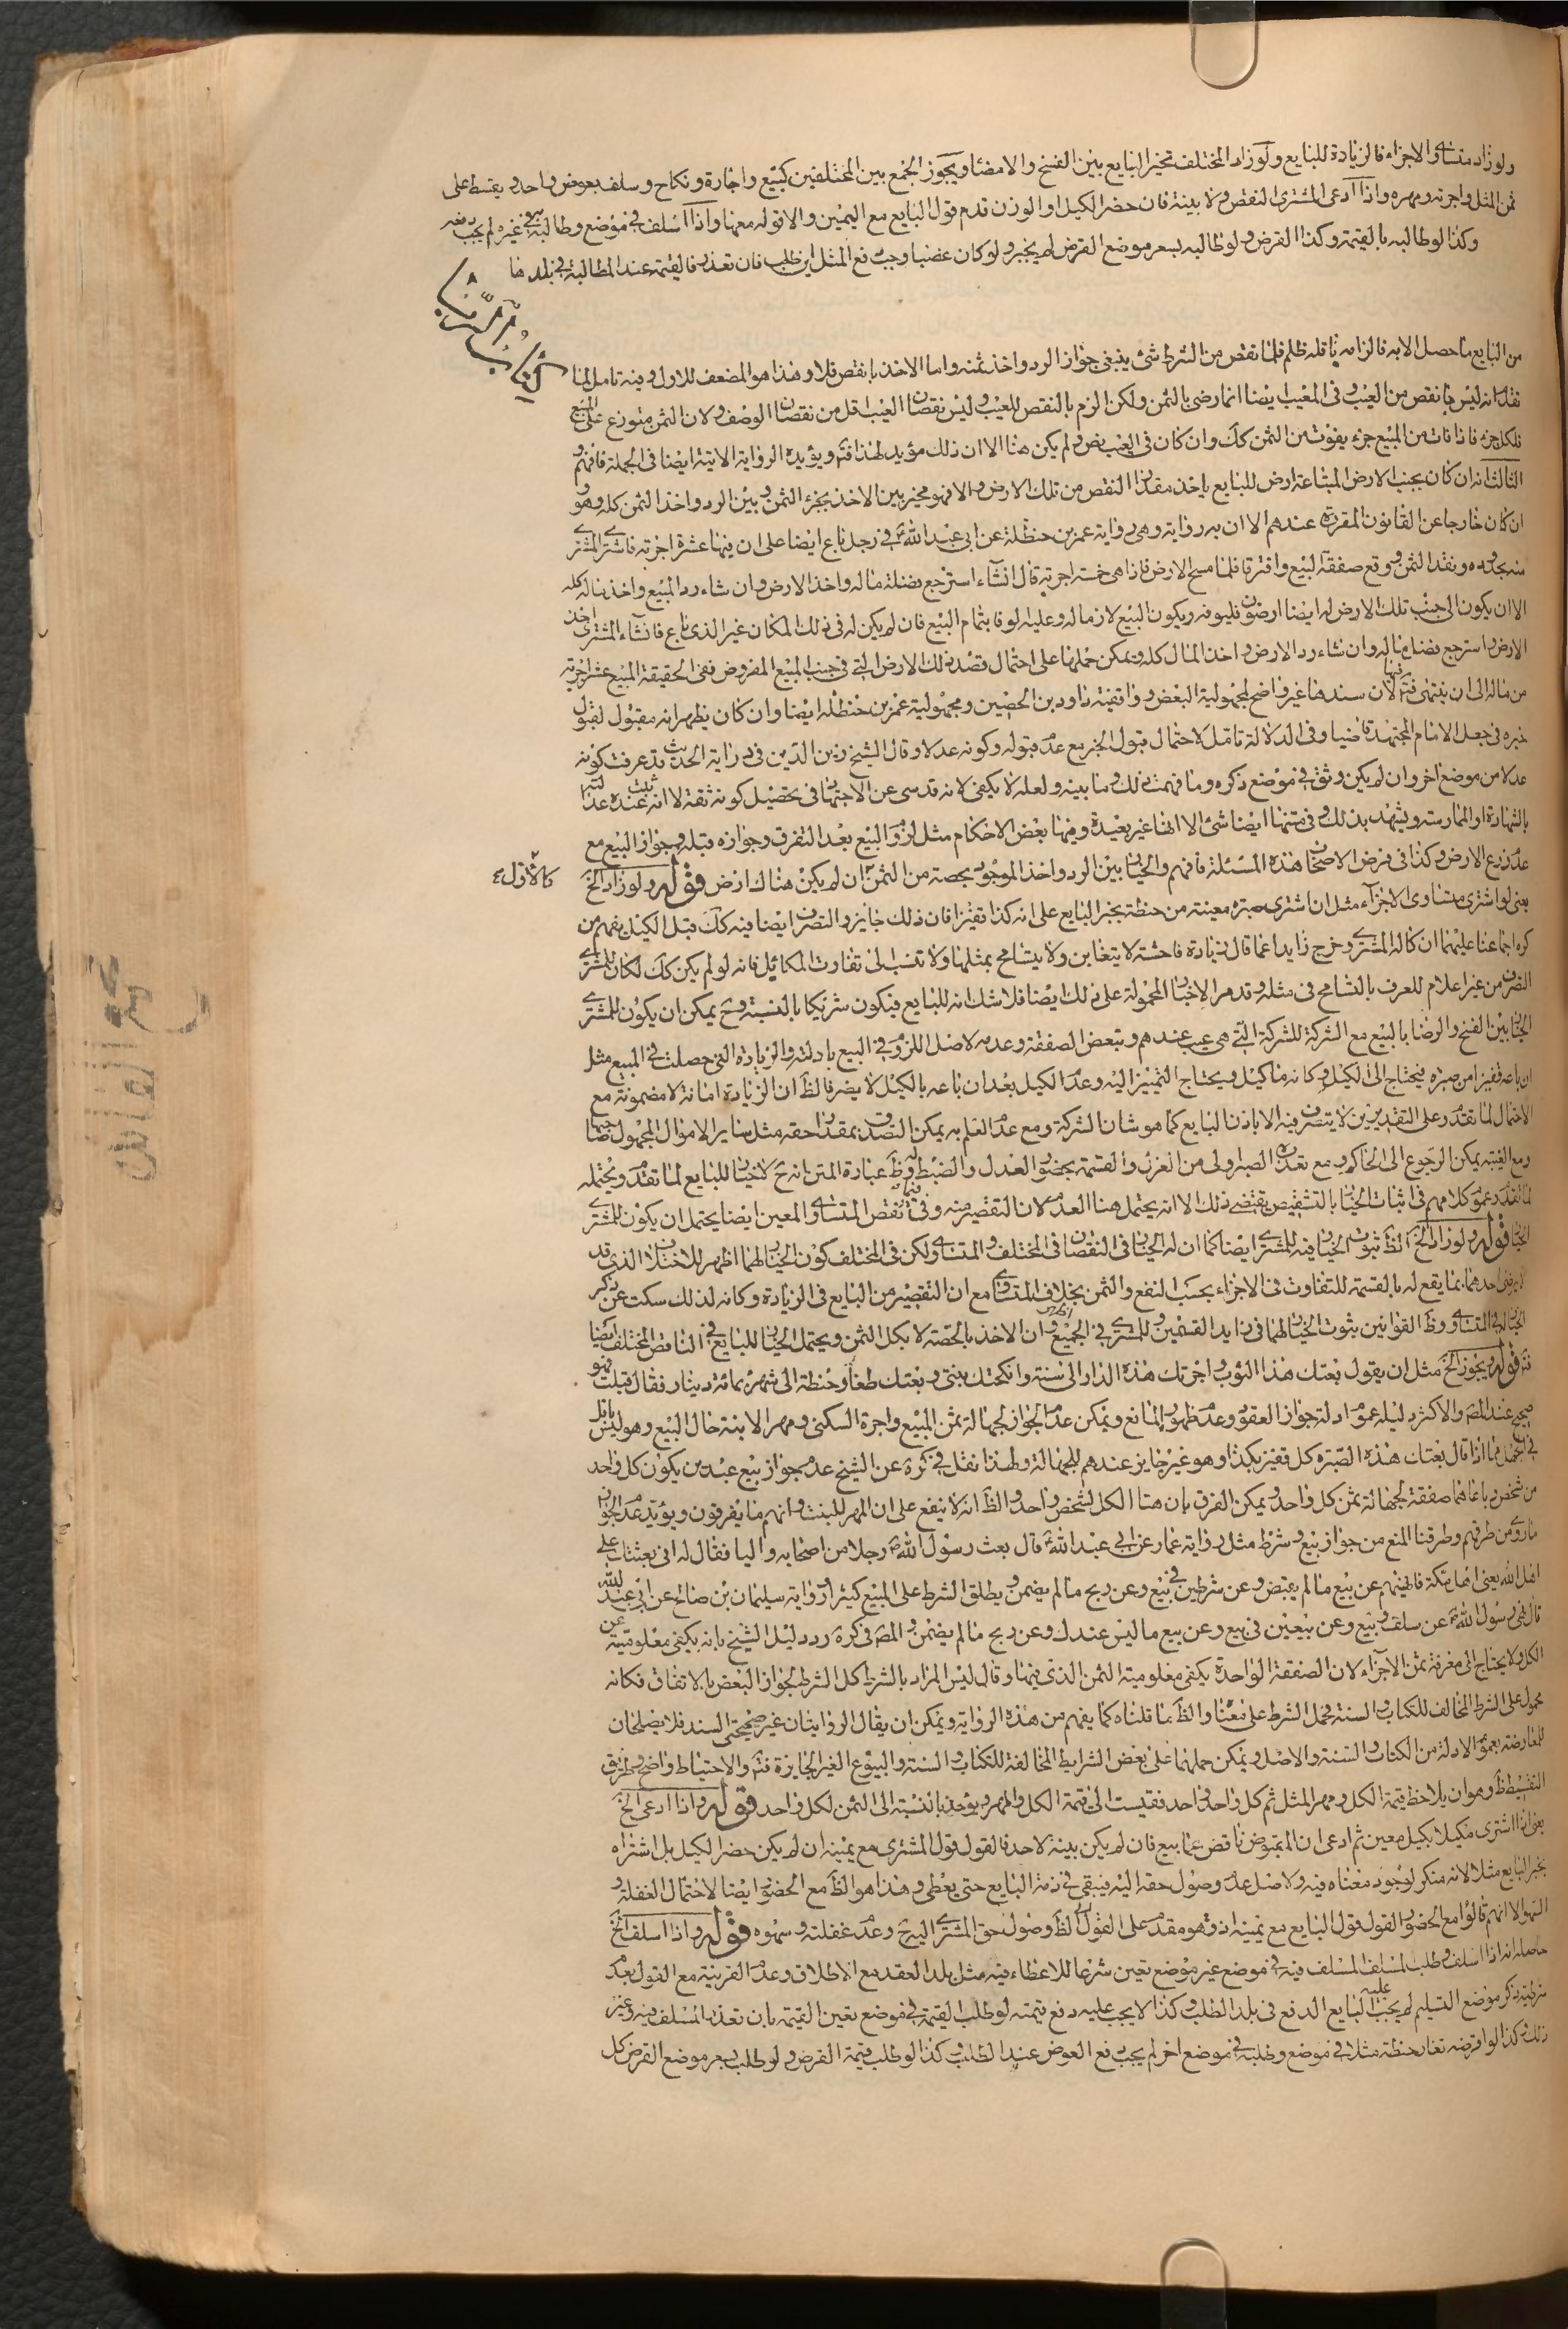 ولو زاد متساوي الاجزاء فالزيادة للبايع ولو زاد المختلف تخير البايع بين الفسخ والامضاء ويجوز الجمع بين المختلفين كبيع واجارة ونكاح وسلف بعوض واحد ويقسط على
ثمن المثل واجرته ومهره واذا ادعى المشترى النقص ولا بينة فان حضر الكيل او الوزن قدم قول البايع مع اليمين والا قوله معها واذا اسلف في موضع وطالبه في غيره لم يجب دفعه
وكذا لو طالبه بالقيمة وكذا القرض ولو طالبه بسعر موضع القرض لم يجبر ولو كان غصبا وجب دفع المثل اين طلب فان تعذر فالقيمة عند المطالبة في بلدها
من البايع ما حصل الا به فالزامه باقله ظلم فلما نقص من الشرط شئ ينبغي جواز الرد واخذ ثمنه واما الاخذ بانقص فلا وهذا هو المضعف للاول وفيه تامل لما
نقل انه ليس بانقص من العيب وفي المعيب ايضا انما رضى بالثمن ولكن الزم بالنقص للعيب وليس نقصان العيب اقل من نقصان الوصف ولان الثمن متوزع على المبيع
فلكل جزء فاذا فات من المبيع جزء يفوت من الثمن كك وان كان في العيب نص ولم يكن هنا الا ان ذلك مؤيد لهذا فتم ويؤيده الرواية الاتية ايضا في الجملة فافهم
الثالث انه ان كان بجنب الارض المبتاعة ارض للبايع ياخذ مقدار النقص من تلك الارض والا فهو مخير بين الاخذ بجزء الثمن وبين الرد واخذ الثمن كله وهو
ان كان خارجا عن القانون المقررة عندهم الا ان به رواية وهى رواية عمر بن حنظلة عن ابى عبد الله ع في رجل باع ايضا على ان فيها عشرة اجربة فاشترى المشترى
منه بحدوده ونقد الثمن ووقع صفقة البيع وافترقا فلما مسح الارض فاذا هى خمسة اجربة قال ان شآء استرجع فضلة ماله واخذ الارض وان شاء رد المبيع واخذ ماله كله
الا ان يكون الى جنب تلك الارض له ايضا ارضون فليوفه ويكون البيع لازما له وعليه الوفا بتمام البيع فان لم يكن له في ذلك المكان غير الذى باع فان شآء المشترى اخذ
الارض واسترجع فضل ماله وان شاء رد الارض واخذ المال كله ويمكن حملها على احتمال قصد تلك الارض التى في جنب المبيع المفروض ففى الحقيقة المبيع عشر اجربة
من ماله الى ان ينتهى فتم فيها لان سندها غير واضح لمجهولية البعض وواقفية داود بن الحصين ومجهولية عمر بن حنظلة ايضا وان كان يظهر انه مقبول لقبول
خبره في جعل الامام المجتهد قاضيا وفى الدلالة تامل لاحتمال قبول الخبر مع عدم قبوله وكونه عدلا وقال الشيخ زين الدين في دراية الحديث قد عرفت كونه
عدلا من موضع اخر وان لم يكن وثق في موضع ذكره وما فهمت ذلك وما بينه ولعله لا يكفى لانه قدسى عن الاجتهاد في تحصيل كونه ثقة لا انه ثبت عنده عدالته
بالشهادة او الممارسة ويشهد بذلك وفى متنها ايضا شئ الا انها غير بعيدة وفيها بعض الاحكام مثل لزوم البيع بعد التفرق وجوازه قبله وجواز البيع مع
عدم ذرع الارض وكذا في فرض الاصحاب هذه المسئلة فافهم والخيار بين الرد واخذ الموجود بحصته من الثمن ان لم يكن هناك ارض قوله ولو زاد الخ
يعنى لو اشترى متساوى الاجزآء مثل ان اشترى صبرة معينة من حنطة بخبر البايع على انه كذا قفيزا فان ذلك جايز والتصرف ايضا فيه كك قبل الكيل يفهم من
كره اجماعنا عليهما ان كاله المشترى وخرج زايدا عما قال زيادة فاحشة لا يتغابن ولا يتسامح بمثلها ولا تنسب الى تفاوت المكائيل فانه لو لم يكن كك لكان للمشترى
التصرف من غير اعلام للعرف بالتسامح في مثله وقد مر الاخبار المحمولة على ذلك ايضا فلا شك انه للبايع فيكون شريكا بالنسبة وح يمكن ان يكون للمشترى
الخيار بين الفسخ والرضا بالبيع مع الشركة للشركة التى هى عيب عندهم وتبعض الصفقة وعدمه لاصل اللزوم في البيع بادلته والزيادة التى حصلت في المبيع مثل
ان باعه قفيزا من صبرة فيحتاج الى الكيل وكانه ما كيل ويحتاج التمييز اليه وعدم الكيل بعد ان باعه بالكيل لا يضر فالظ ان الزيادة امانة لا مضمونة مع
الاحتمال لما تقدم وعلى التقديرين لا يتصرف فيه الا باذن البايع كما هو شان الشركة ومع عدم العلم به يمكن التصدق بمقدار حقه مثل ساير الاموال المجهول صاحبها
ومع الغيبة يمكن الرجوع الى الحاكم ومع تعذره الصبر ولى من العزل والقسمة بحضور العدل والضبط له وظ عبارة المتن انه ح لا خيار للبايع لما تقدم ويحتمله
لما تقدم وعموم كلامهم في اثبات الخيار بالتشقيص يقتضى ذلك الا انه يحتمل هنا العدم لان التقصير منه وفى نقص المتساوى المعين ايضا يحتمل ان يكون للمشترى
الخيار قوله ولو زاد الخ الظ ثبوت الخيار فيه للمشترى ايضا كما ان له الخيار في النقصان في المختلف والمتساوى ولكن في المختلف كون الخيار لهما اظهر للاختلاف الذى قد
لا يرضى احدهما بما يقع له بالقسمة للتفاوت في الاجزاء بحسب النفع والثمن بخلاف المتساوى مع ان التقصير من البايع في الزيادة وكانه لذلك سكت عن ذكر
الخيار في المتساوى وظ القوانين ثبوت الخيار لهما في زايد القسمين وللمشترى في الجميع وان الاخذ بالحصة لا بكل الثمن ويحتمل الخيار للبايع في الناقص المختلف ايضا
فتم قوله ويجوز الخ مثل ان يقول بعتك هذا الثوب واجرتك هذه الدار الى سنة وانكحتك بنتى وبعتك طعاما وحنطة الى شهر بمائة دينار فقال قبلت فهو
صحيح عند المصنف والاكثر دليله عموم ادلة جواز العقود وعدم ظهور المانع ويمكن عدم الجواز لجهالة ثمن المبيع واجرة السكنى ومهر الابنة حال البيع وهو ليس باقل
في الجهل مما اذا قال بعتك هذه الصبرة كل قفيز بكذا وهو غير جايز عندهم للجهالة ولهذا نقل في كرة عن الشيخ عدم جواز بيع عبدين يكون كل واحد
من شخص وباعاهما صفقة لجهالة ثمن كل واحد ويمكن الفرق بان هنا الكل لشخص واحد والظ انه لا ينفع على ان المهر للبنت وانهم ما يفرقون ويؤيد عدم الجواز
ماروى من طرقهم وطرقنا المنع من جواز بيع وشرط مثل رواية عمار عن ابى عبد الله ع قال بعث رسول الله ص رجلا من اصحابه واليا فقال له انى بعثتك على
اهل الله يعنى اهل مكة فانههم عن بيع ما لم يقبض وعن شرطين في بيع وعن ربح ما لم يضمن ويطلق الشرط على المبيع كثيرا ورواية سليمان بن صالح عن ابى عبد الله
قال نهى رسول الله ص عن سلف وبيع وعن بيعين في بيع وعن بيع ما ليس عندك وعن ربح ما لم يضمن والمصنف في كرة رد دليل الشيخ بانه يكفى معلومية ثمن
الكل ولا يحتاج الى معرفة ثمن الاجزآء لان الصفقة الواحدة يكفى معلومية الثمن الذى فيها وقال ليس المراد بالشرط كل الشرط لجواز البعض بالاتفاق فكانه
محمول على الشرط المخالف للكتاب والسنة فحمل الشرط على معناه والظ ما قلناه كما يفهم من هذه الرواية ويمكن ان يقال الروايتان غير صحيحتى السند فلا يصلحان
للمعارضة بعموم الادلة من الكتاب والسنة والاصل ويمكن حملهما على بعض الشرايط المخالفة للكتاب والسنة والبيوع الغير الجايزة فتم والاحتياط واضح وطريق
التقسيط ظ وهو ان يلاحظ قيمة الكل ومهر المثل ثم كل واحد واحد فقيست الى قيمة الكل والمهر ويؤخذ بالنسبة الى الثمن لكل واحد قوله واذا ادعى الخ
يعنى اذا اشترى مكيلا بكيل معين ثم ادعى ان المقبوض ناقص عما بيع فان لم يكن بينة لاحد فالقول قول المشترى مع يمينه ان لم يكن حضر الكيل بل اشتراه
بخبر البايع مثلا لانه منكر لوجود معناه فيه ولاصل عدم وصول حقه اليه فيبقى في ذمة البايع حتى يعطى وهذا هو الظ مع الحضور ايضا لاحتمال الغفلة و
السهو الا انهم قالوا مع الحضور القول قول البايع مع يمينه اذ هو مقدم على القول لان الظ وصول حق المشترى اليه ح وعدم غفلته وسهوه قوله واذا اسلف الخ
حاصله انه اذا اسلف وطلب المسلف المسلف فيه في موضع غير موضع تعين شرعا للاعطاء فيه مثل بلد العقد مع الاطلاق وعدم القرينة مع القول بعدم
شرطية ذكر موضع التسليم لم يجب عليه البايع الدفع في بلد الطلب وكذا لا يجب عليه دفع قيمته لو طلب القيمة في موضع تعين القيمة بان تعذر المسلف فيه وغير
ذلك وكذا لو اقرضه تغار حنطة مثلا في موضع وطلبه في موضع اخر لم يجب دفع العوض عند الطلب وكذا لو طلب قيمة القرض ولو طلب بسعر موضع القرض كل